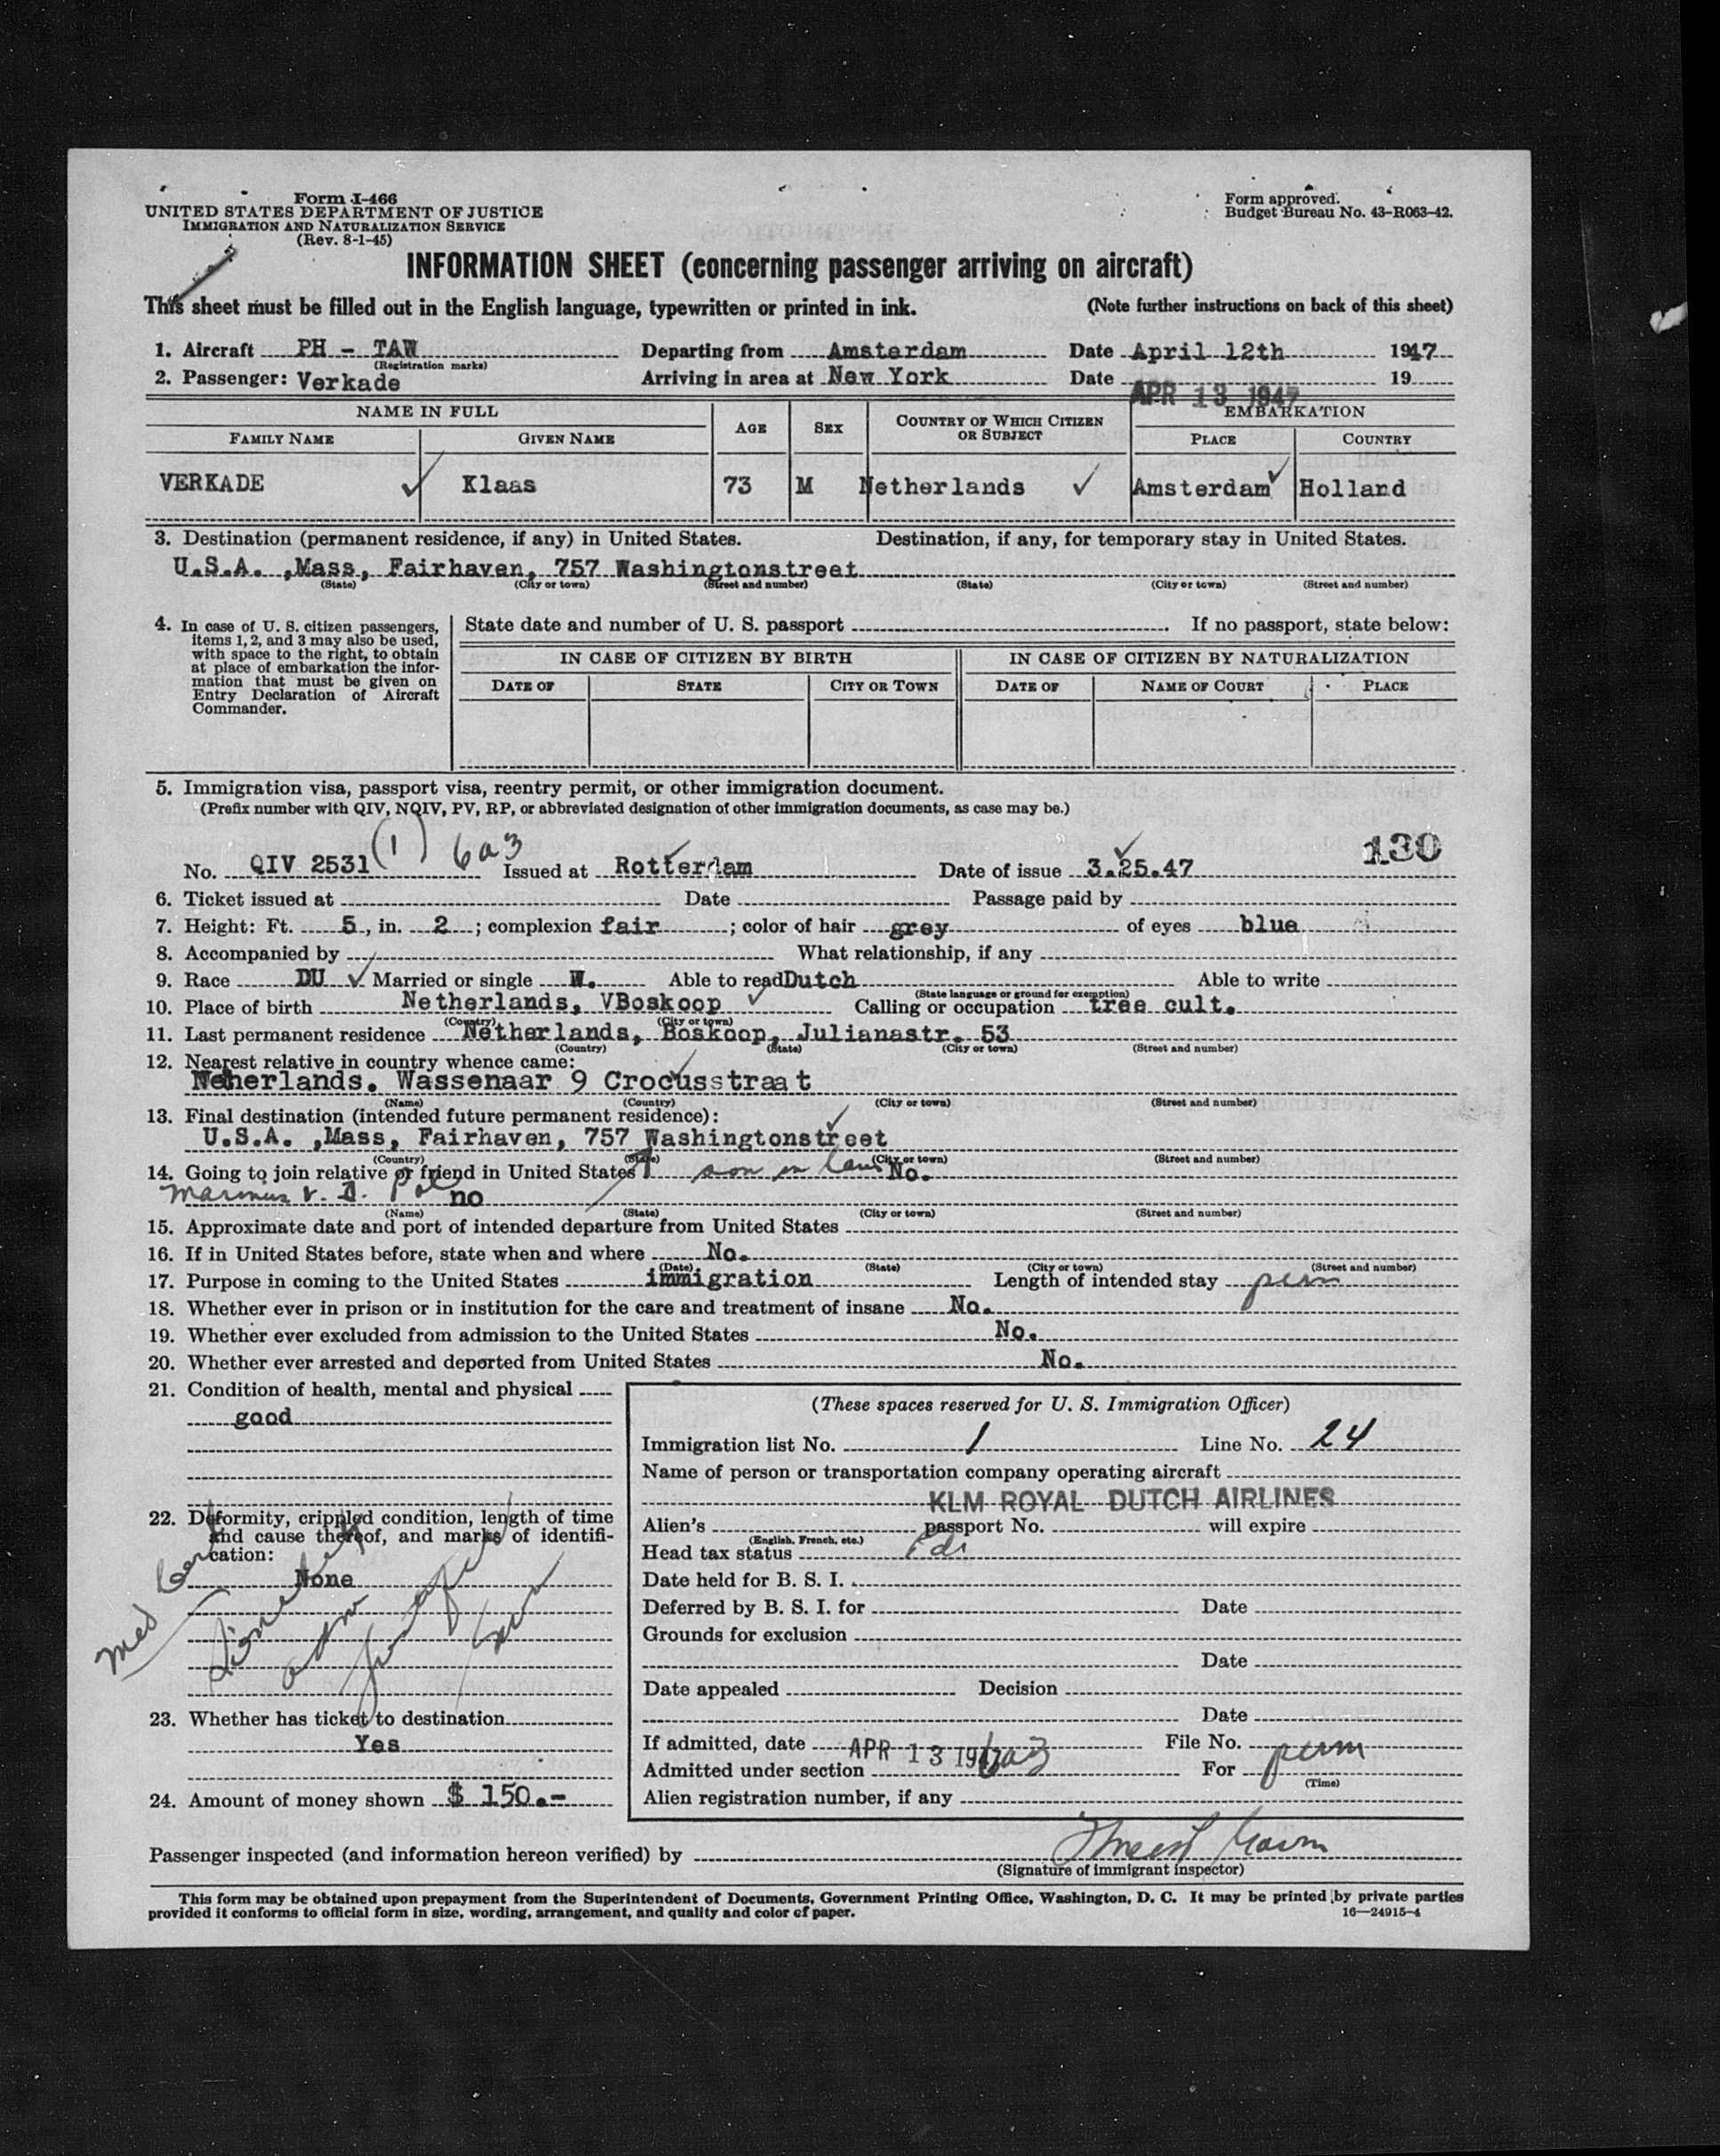 Form I-466
UNITED STATES DEPARTMENT OF JUSTICE
IMMIGRATION AND NATURALIZATION SERVICE
(Rev. 8-1-45)
Form approved.
Budget Bureau No. 43-R063-42.
INFORMATION SHEET (concerning passenger arriving on aircraft)
This sheet must be filled out in the English language, typewritten or printed in ink. (Note further instructions on back of this sheet)
1. Aircraft PH - TAW Departing from Amsterdam Date April 12th 1947
(Registration marks)
2. Passenger: Verkade Arriving in area at New York Date APR 13 1947 19
NAME IN FULL AGE SEX COUNTRY OF WHICH CITIZEN OR SUBJECT EMBARKATION
FAMILY NAME GIVEN NAME PLACE COUNTRY
VERKADE Klaas 73 M Netherlands Amsterdam Holland
3. Destination (permanent residence, if any) in United States. Destination, if any, for temporary stay in United States.
U.S.A. ,Mass, Fairhaven, 757 Washingtonstreet
(State) (City or town) (Street and number) (State) (City or town) (Street and number)
4. In case of U. S. citizen passengers,
items 1, 2, and 3 may also be used,
with space to the right, to obtain
at place of embarkation the infor-
mation that must be given on
Entry Declaration of Aircraft
Commander.
State date and number of U. S. passport . If no passport, state below:
IN CASE OF CITIZEN BY BIRTH IN CASE OF CITIZEN BY NATURALIZATION
DATE OF STATE CITY OR TOWN DATE OF NAME OF COURT PLACE
5. Immigration visa, passport visa, reentry permit, or other immigration document.
(Prefix number with QIV, NQIV, PV, RP, or abbreviated designation of other immigration documents, as case may be.)
130
No. QIV 2531 (1) 6a3 Issued at Rotterdam Date of issue 3.25.47
6. Ticket issued at Date Passage paid by
7. Height: Ft. 5, in. 2; complexion fair; color of hair grey of eyes blue
8. Accompanied by What relationship, if any
9. Race DU Married or single W. Able to read Dutch Able to write
(State language or ground for exemption)
10. Place of birth Netherlands, VBoskoop Calling or occupation tree cult.
(Country) (City or town)
11. Last permanent residence Netherlands, Boskoop, Julianastr. 53
(Country) (State) (City or town) (Street and number)
12. Nearest relative in country whence came:
Netherlands. Wassenaar 9 Crocusstraat
(Name) (Country) (City or town) (Street and number)
13. Final destination (intended future permanent residence):
U.S.A. ,Mass, Fairhaven, 757 Washingtonstreet
(Country) (State) (City or town) (Street and number)
14. Going to join relative or friend in United States son in law No.
Marinus v. d. Pol no
(Name) (State) (City or town) (Street and number)
15. Approximate date and port of intended departure from United States
16. If in United States before, state when and where No.
(Date) (State) (City or town) (Street and number)
17. Purpose in coming to the United States immigration Length of intended stay perm
18. Whether ever in prison or in institution for the care and treatment of insane No.
19. Whether ever excluded from admission to the United States No.
20. Whether ever arrested and deported from United States No.
21. Condition of health, mental and physical
good
22. Deformity, crippled condition, length of time
and cause thereof, and marks of identifi-
cation:
None
Med Cert
23. Whether has ticket to destination
Yes
24. Amount of money shown $ 150.-
(These spaces reserved for U. S. Immigration Officer)
Immigration list No. 1 Line No. 24
Name of person or transportation company operating aircraft
KLM ROYAL DUTCH AIRLINES
Alien's passport No. will expire
(English, French, etc.)
Head tax status Pd
Date held for B. S. I.
Deferred by B. S. I. for Date
Grounds for exclusion
Date
Date appealed Decision
Date
If admitted, date APR 13 1947 File No.
Admitted under section 6a3 For perm
(Time)
Alien registration number, if any
Passenger inspected (and information hereon verified) by
(Signature of immigrant inspector)
This form may be obtained upon prepayment from the Superintendent of Documents, Government Printing Office, Washington, D. C. It may be printed by private parties
provided it conforms to official form in size, wording, arrangement, and quality and color of paper. 16—24915-4